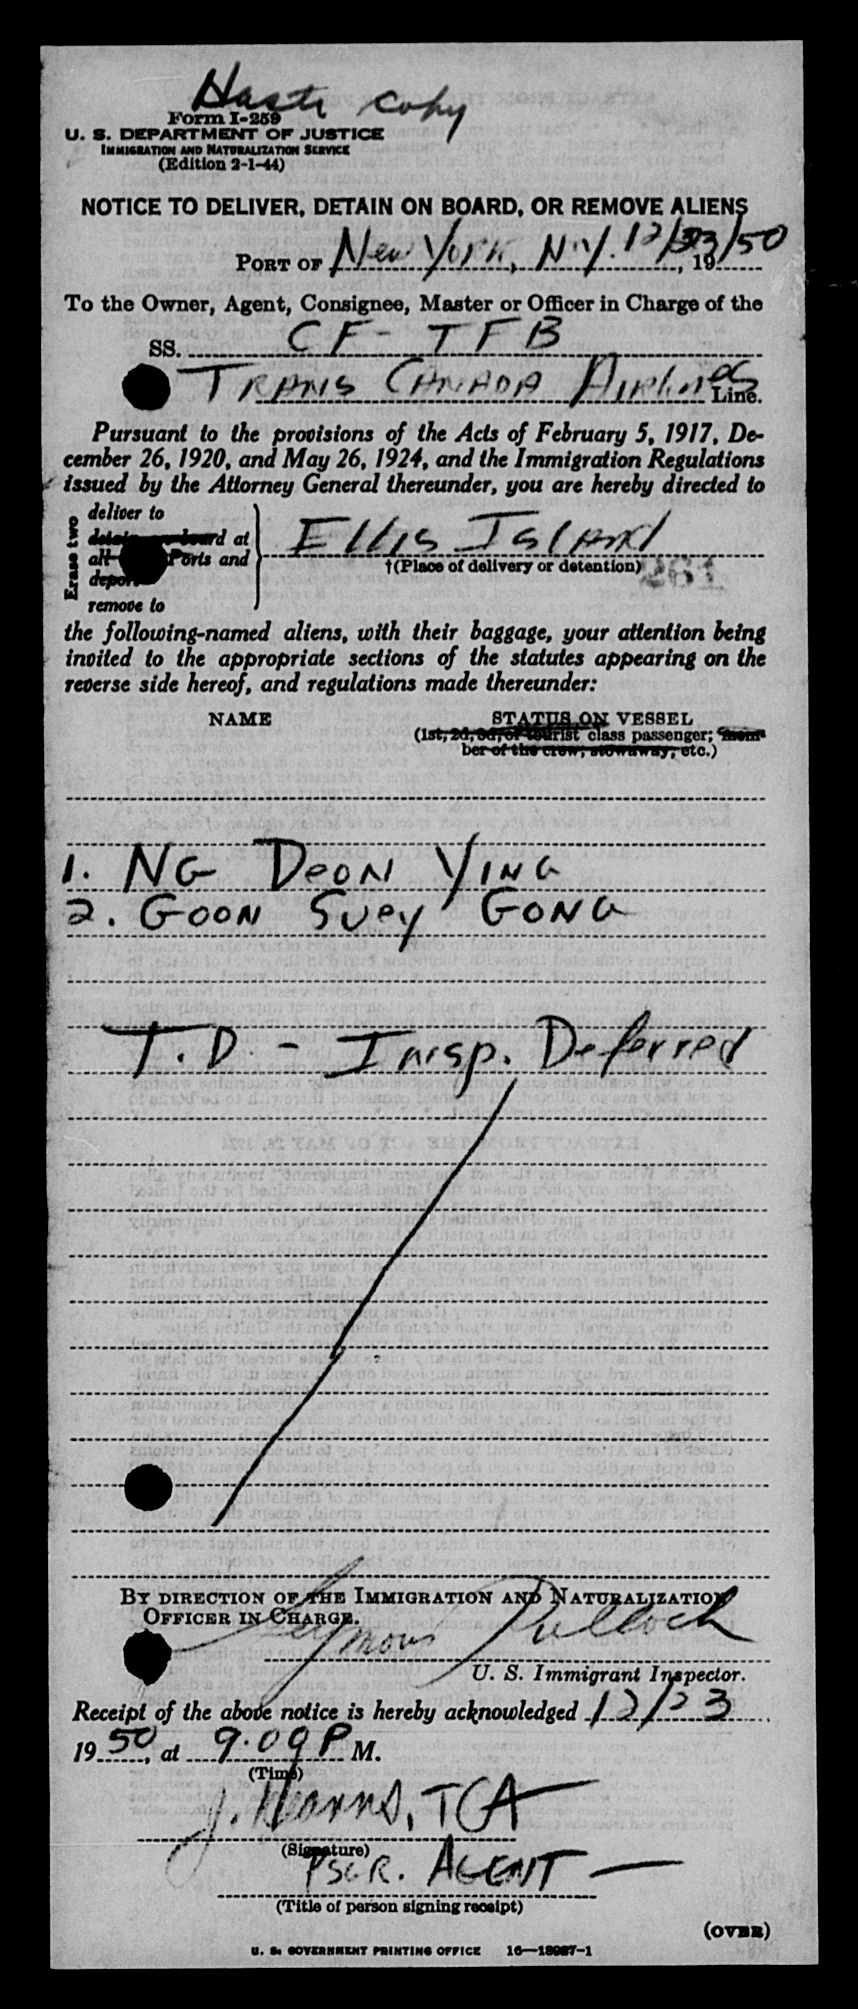 Copy
Form I-259
U. S. DEPARTMENT OF JUSTICE
IMMIGRATION AND NATURALIZATION SERVICE
(Edition 2-1-44)
NOTICE TO DELIVER, DETAIN ON BOARD, OR REMOVE ALIENS
PORT OF New York, N.Y. 12/23/50, 19
To the Owner, Agent, Consignee, Master or Officer in Charge of the
SS. CF-TFB
TRANS CANADA AIRLINES Line.
Pursuant to the provisions of the Acts of February 5, 1917, De-
cember 26, 1920, and May 26, 1924, and the Immigration Regulations
issued by the Attorney General thereunder, you are hereby directed to
Erase two
deliver to
detain on board at
all Ports and
deport
remove to
Ellis Island
†(Place of delivery or detention)
261
the following-named aliens, with their baggage, your attention being
invited to the appropriate sections of the statutes appearing on the
reverse side hereof, and regulations made thereunder:
NAME STATUS ON VESSEL
(1st, 2d, 3d, or tourist class passenger; mem-
ber of the crew, stowaway, etc.)
1. NG DEON YING
2. GOON SUEY GONG
T.D. - Insp. Deferred
BY DIRECTION OF THE IMMIGRATION AND NATURALIZATION
OFFICER IN CHARGE.
Seymour Pollock
U. S. Immigrant Inspector.
Receipt of the above notice is hereby acknowledged 12/23
1950, at 9:09 P M.
(Time)
J. Hearns, TCA
(Signature)
PSGR. AGENT —
(Title of person signing receipt)
(OVER)
U. S. GOVERNMENT PRINTING OFFICE 16—18987-1